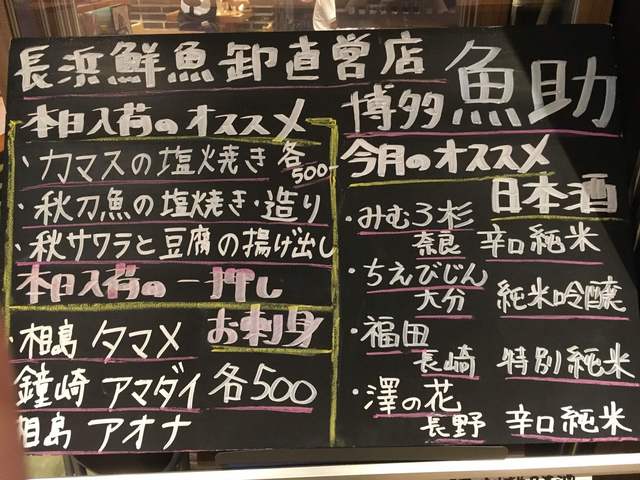 長浜鮮魚卸直営店
博多 魚助
本日入荷のオススメ
・カマスの塩焼き 各500-
・秋刀魚の塩焼き・造り
・秋サワラと豆腐の揚げ出し
本日入荷の一押し
お刺身
・相島 タマメ
鐘崎 アマダイ 各500
相島 アオナ
今月のオススメ
日本酒
・みむろ杉
奈良 辛口純米
・ちえびじん
大分 純米吟醸
・福田
長崎 特別純米
・澤の花
長野 辛口純米